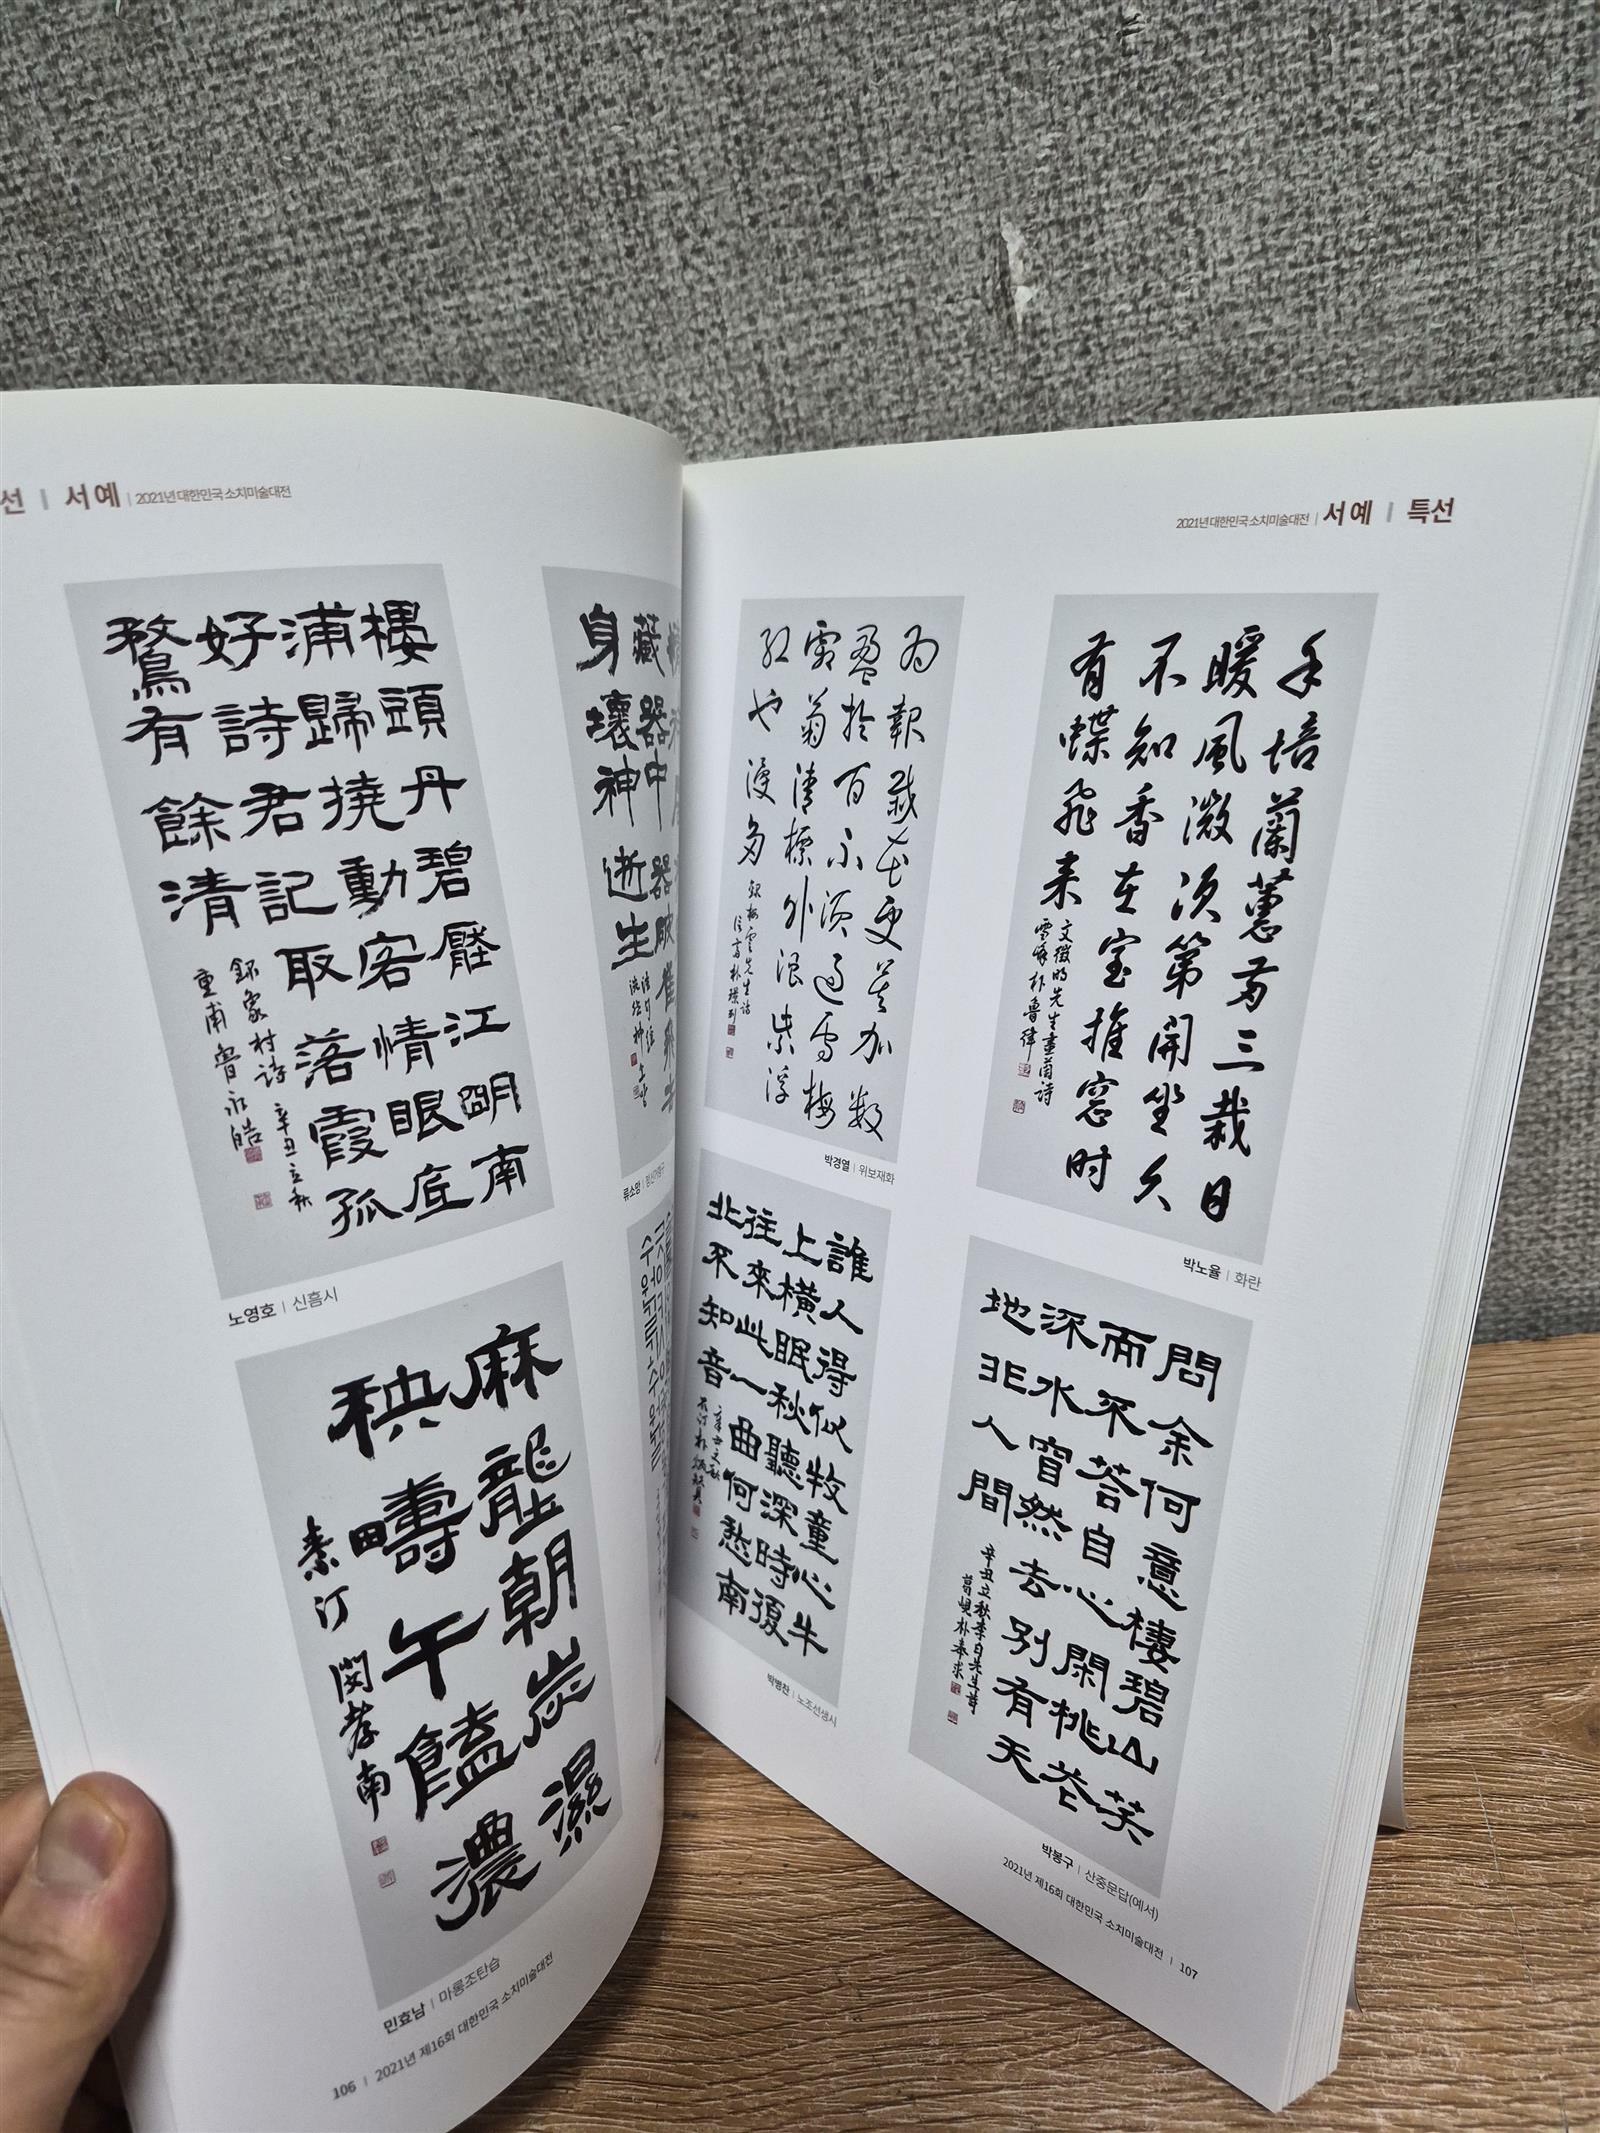 선 | 서예 | 2021년 대한민국 소치미술대전
樓頭丹碧壓江明南
浦歸橈動客情眼底
好詩君記取落霞孤
鶩有餘清
錄象村詩 辛丑立秋
노영호 | 신흠시
身壞神逝生
류소망
麻龍朝炭濕
秧疇午饁濃
素汀 閔孝南
민효남 | 마롱조탄습
106 | 2021년 제16회 대한민국 소치미술대전
2021년 대한민국 소치미술대전 | 서예 | 특선
为報栽花更莫加数
盈於百不須過雪梅
霜菊清標外浪紫浮
红也漫多
박경열 | 위보재화
手培蘭蕙两三栽日
暖風微次第開坐久
不知香在室推窓时
有蝶飛来
文徵明先生畫蘭詩
박노율 | 화란
誰人得似牧童心牛
上橫眠秋聽深時復
往來此一曲何愁南
北不知音
박병찬 | 노조선생시
問余何意棲碧山笑
而不荅自心閑桃花
流水窅然去別有天
地非人間
辛丑立秋李白先生詩
박봉구 | 산중문답(예서)
2021년 제16회 대한민국 소치미술대전 | 107